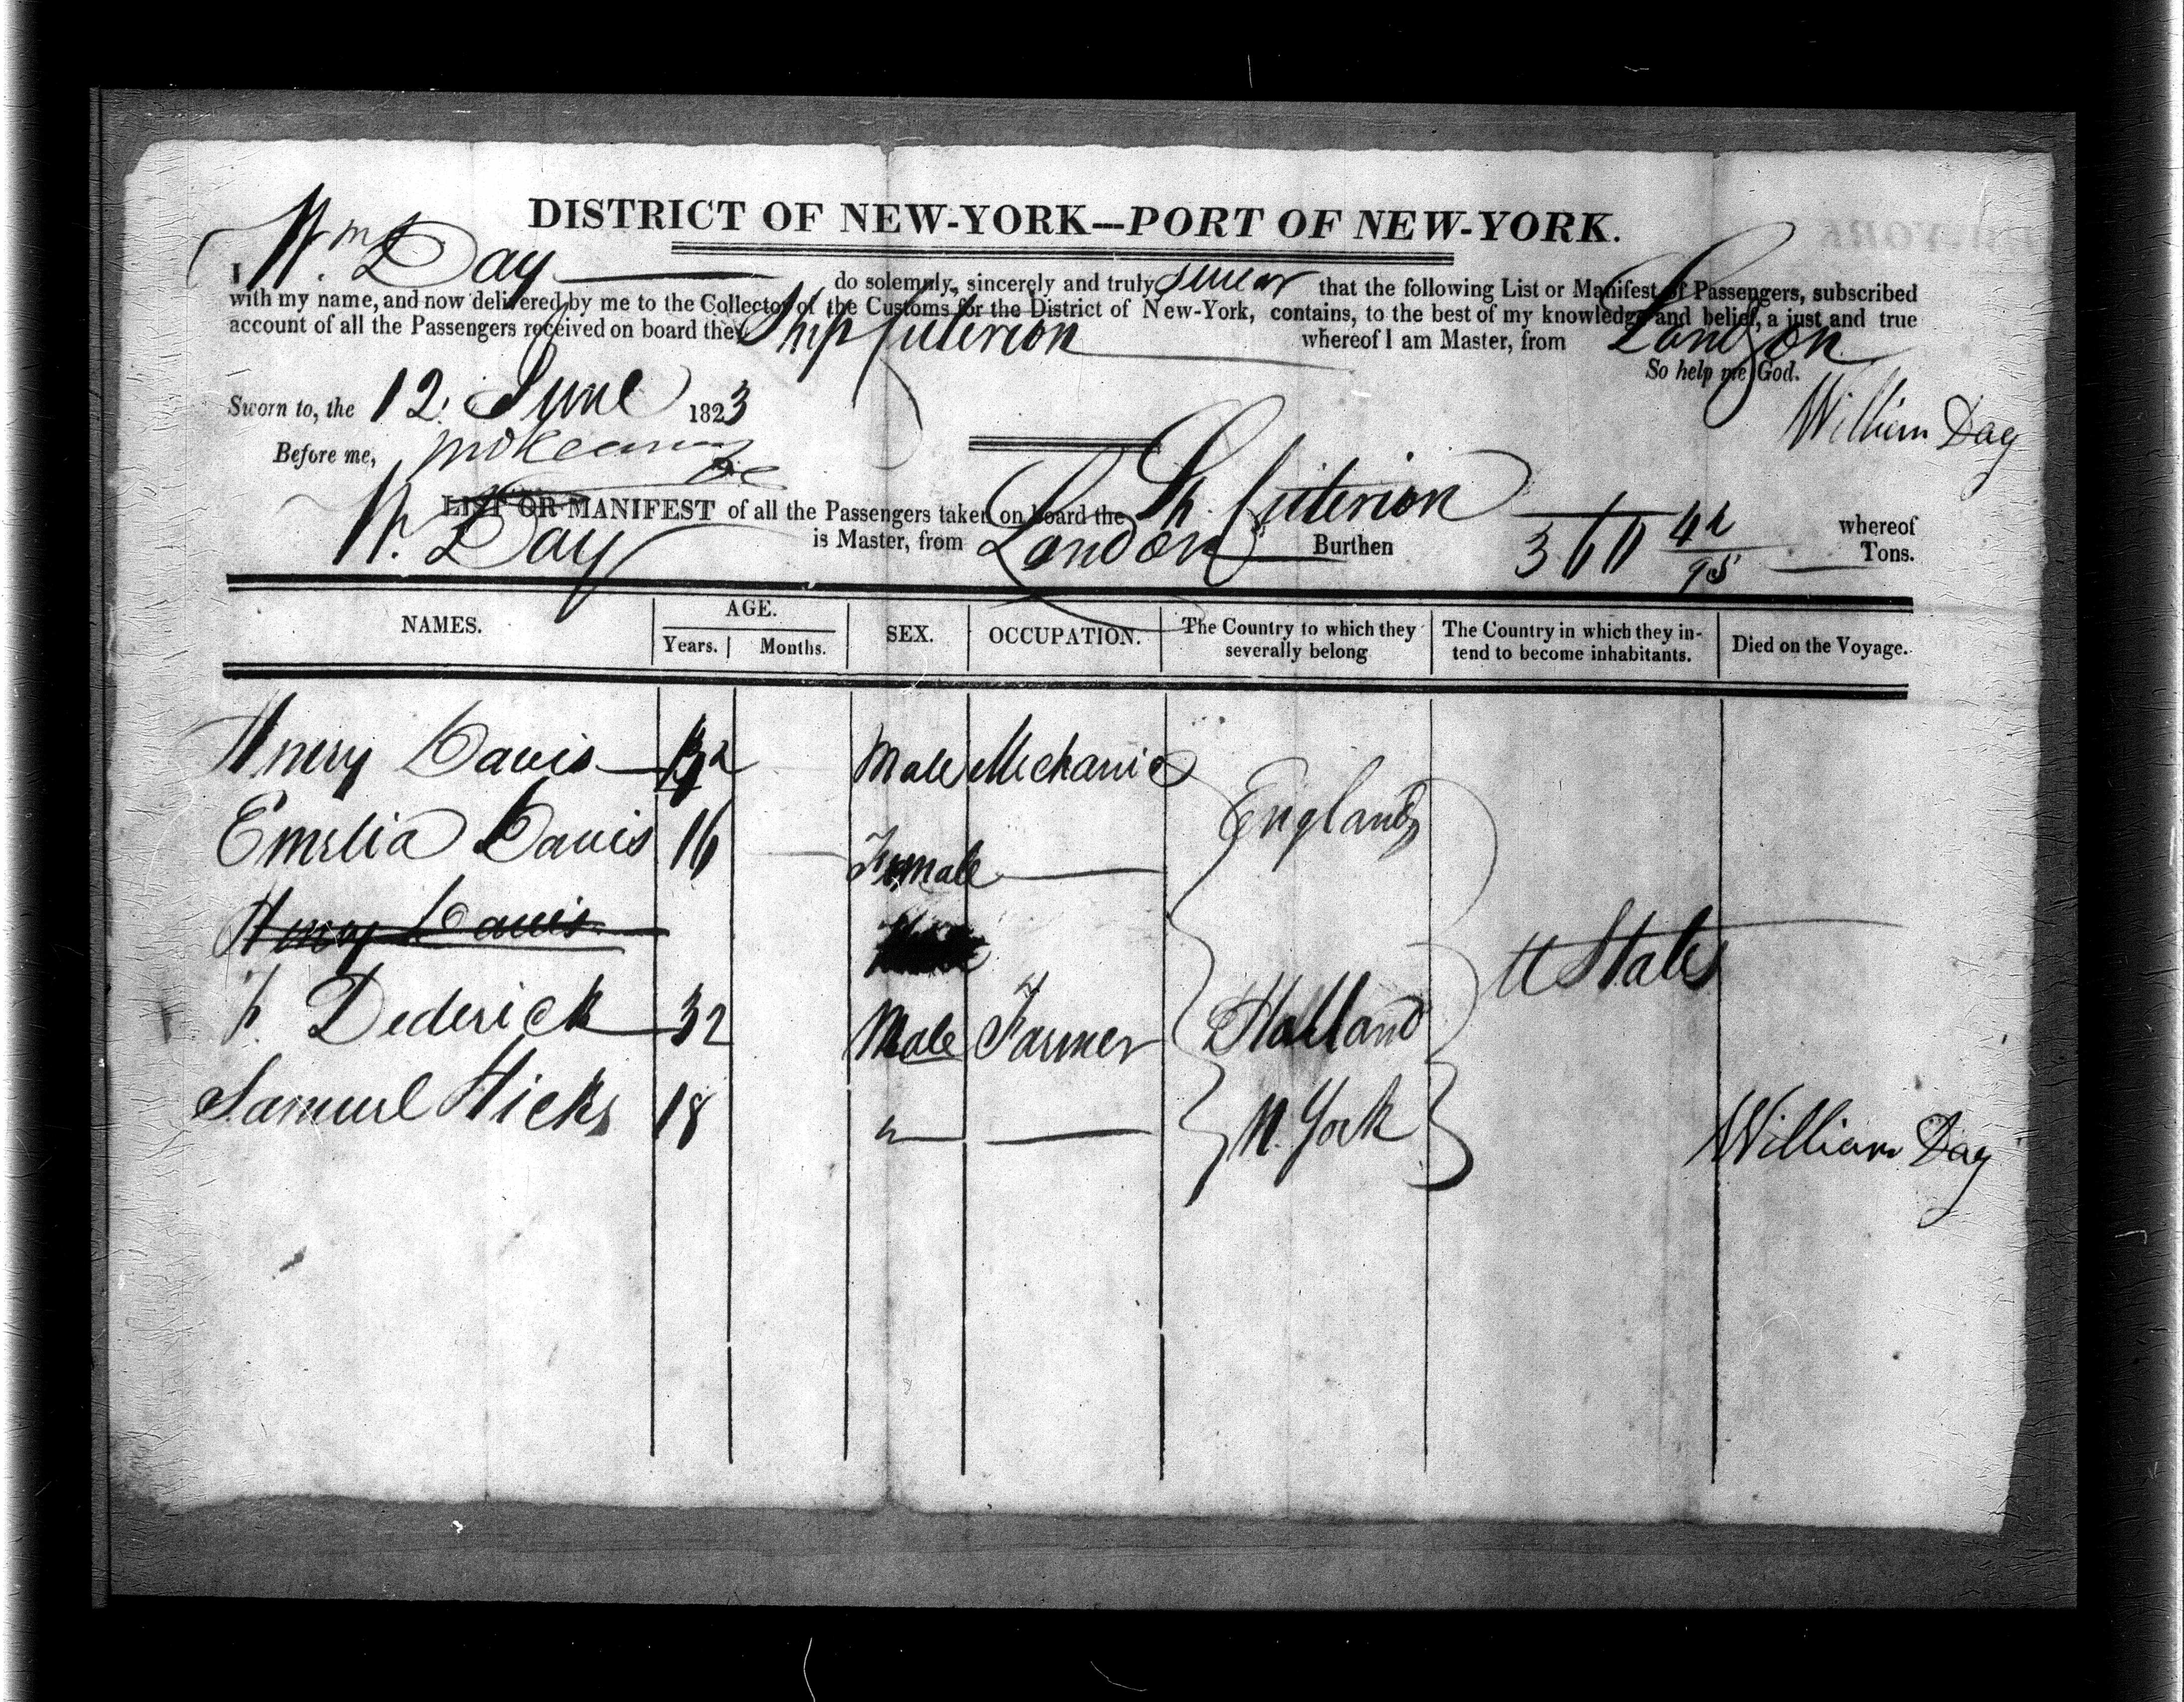 DISTRICT OF NEW-YORK—PORT OF NEW-YORK.
I Wm Day do solemnly, sincerely and truly swear that the following List or Manifest of Passengers, subscribed
with my name, and now delivered by me to the Collector of the Customs for the District of New-York, contains, to the best of my knowledge and belief, a just and true
account of all the Passengers received on board the Ship Criterion whereof I am Master, from London
So help me God.
Sworn to, the 12 June 1823
William Day
Before me,
LIST OR MANIFEST of all the Passengers taken on board the Sh. Criterion whereof
W. Day is Master, from London Burthen 360 Tons.
NAMES. AGE. Years. Months. SEX. OCCUPATION. The Country to which they severally belong The Country in which they intend to become inhabitants. Died on the Voyage.
Henry Davis Male Mechanic
England
Emelia Davis 16 Female
Henry Davis
U States
F. Dederick 32 Male Farmer Holland
Samuel Hicks 18 " N. York
William Day